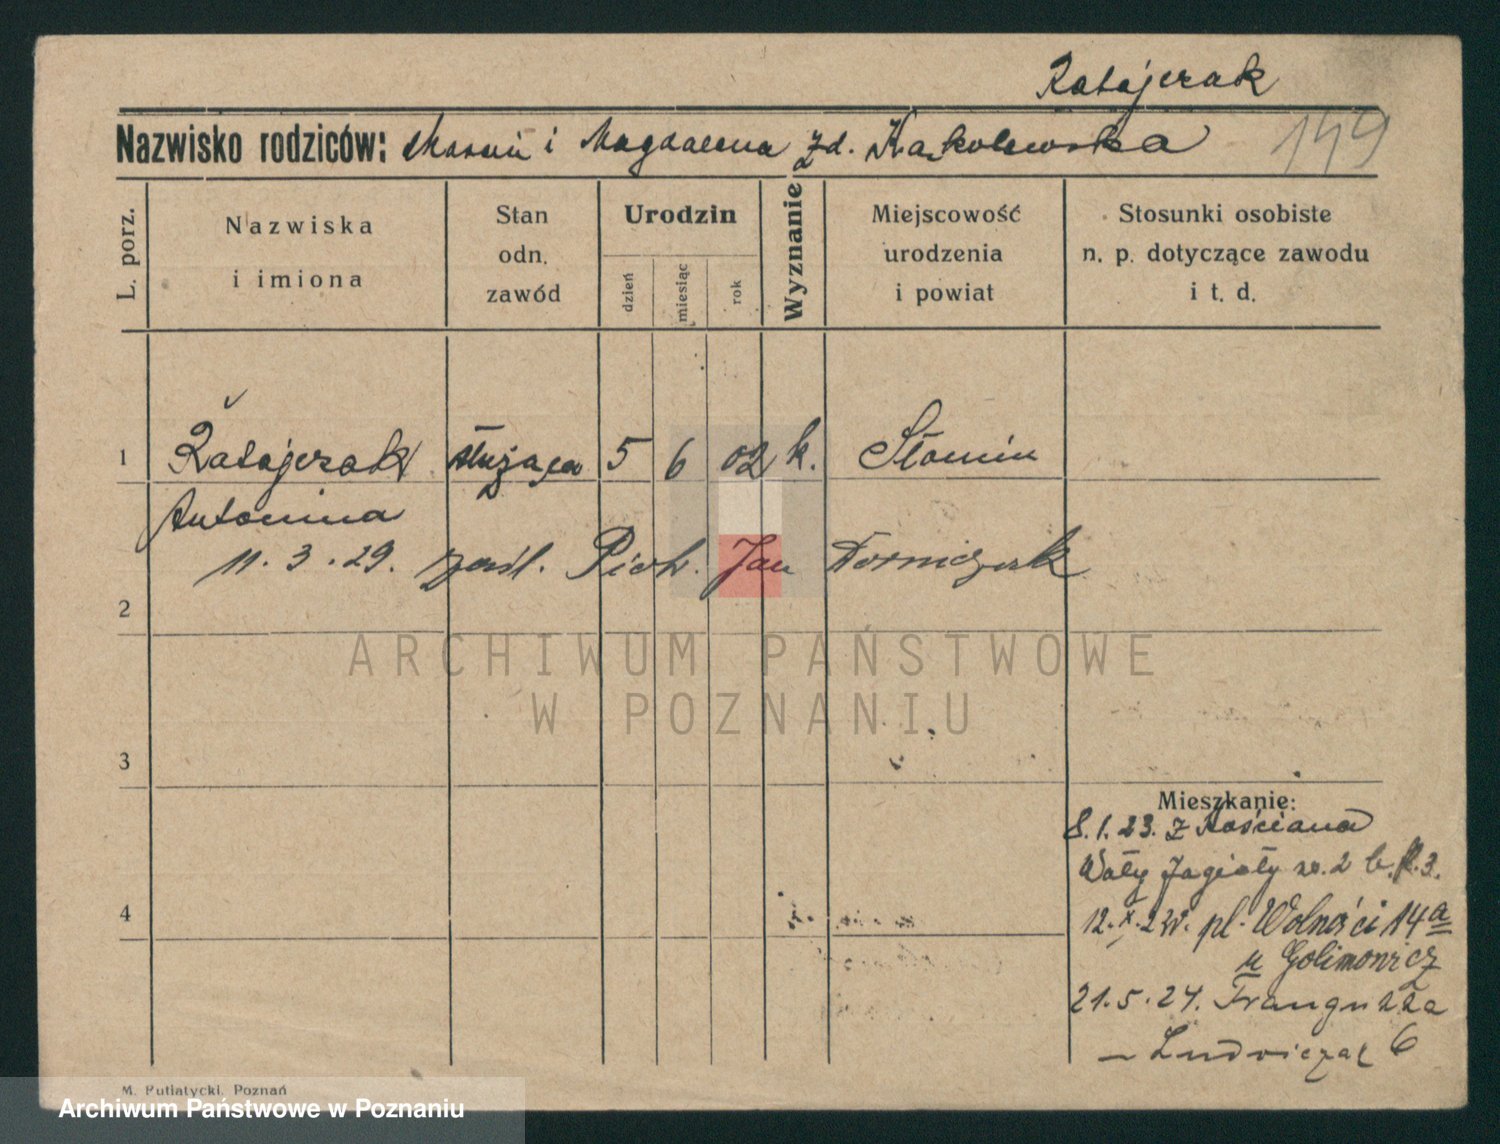 Ratajczak
Nazwisko rodziców: Marcin i Magdalena zd. Kąkolewska 149
L. porz.
Nazwiska
i imiona
Stan
odn.
zawód
Urodzin
dzień
miesiąc
rok
Wyznanie
Miejscowość
urodzenia
i powiat
Stosunki osobiste
n. p. dotyczące zawodu
i t. d.
1 Ratajczak służąca 5 6 02 k. Słonin
Antonina
11.3.29. zaśl. Piotr. Jan
2
3
4
Mieszkanie:
8.1.23. z Kościana
Wały Jagiełły 2 3.
12.X. pl. Wolności 14a
u Golimowicz
21.5.24. Franguzka
Ludwiczak 6
M. Putiatycki, Poznań
ARCHIWUM PAŃSTWOWE
W POZNANIU
Archiwum Państwowe w Poznaniu